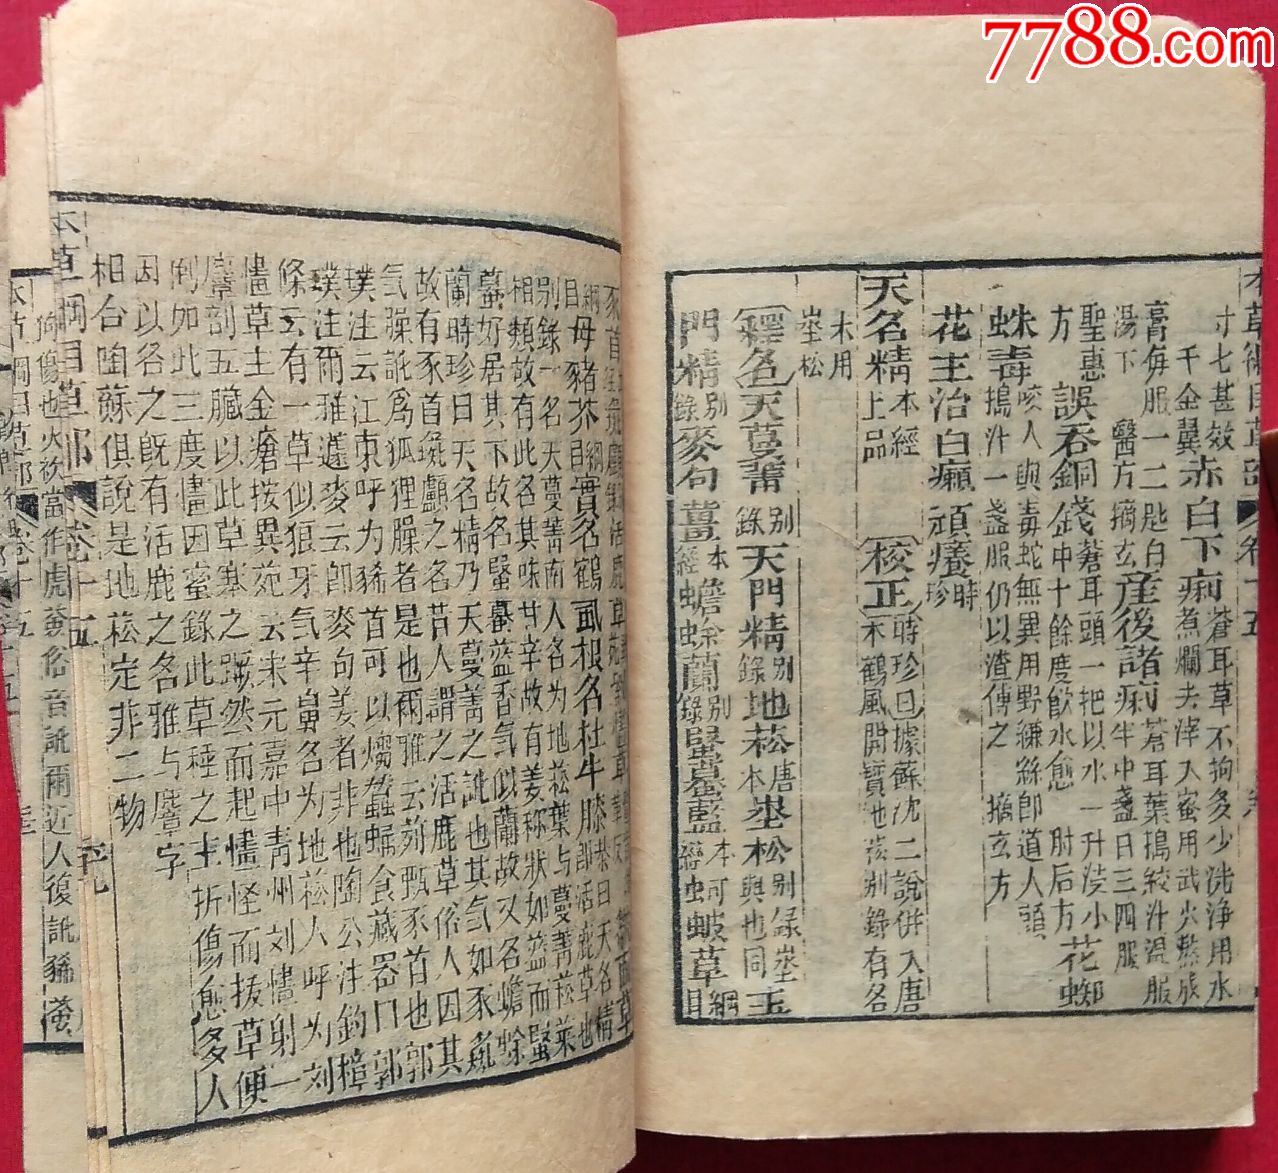 7788.com
寸七甚效 千金翼 赤白下痢 蒼耳草不拘多少洗淨用水
煮爛去滓入蜜用武火熬成
膏每服一二匙白
湯下 醫方摘玄 產後諸痢 蒼耳葉搗絞汁溫服
半中盞日三四服
聖惠
方 誤吞銅錢 蒼耳頭一把以水一升浸小
中十餘度飲水愈 肘后方 花蜘
蛛毒 咬人與毒蛇無異用野縑絲即道人頭
搗汁一盞服仍以渣傅之 摘玄方
花主治白癩頑癢 時珍
天名精 本經上品 校正 時珍曰據蘇沈二說併入唐
本鶴風開寶地菘別錄有名
未用
埊松
釋名 天蔓菁 別錄 天門精 別錄 地菘 唐本 埊松 別錄 埊與地同 玉
門精 別錄 麥句薑 本經 蟾蜍蘭 別錄 蝦蟇藍 本經 蚵蚾草 綱目
目母豬芥 綱目 實名鶴虱根名杜牛膝
別錄一名天蔓菁南人名為地菘葉與蔓菁菘菜
相類故有此名其味甘辛故有姜称狀如藍而蝦
蟇好居其下故名蝦蟇藍香气似蘭故又名蟾蜍
蘭時珍曰天名精乃天蔓菁之訛也其气如豕彘
故有豕首彘顱之名昔人謂之活鹿草俗人因其
气臊訛爲狐狸臊者是也爾雅云茢甄豕首也郭
璞注云江東呼为豨首可以㷉蠶蛹食藏器曰郭
璞注爾雅蘧麥云即麥句姜者非也陶公注釣樟
條云有一草似狼牙气辛臭名为地菘人呼为刘
㦎草主金瘡按異苑云宋元嘉中青州刘㦎射一
麞剖五臟以此草塞之蹶然而起㦎怪而拔草便
倒如此三度㦎因密錄此草種之主折傷愈多人
因以名之既有活鹿之名雅与麞字
相合陶蘇俱說是地菘定非二物
本草綱目草部 卷十五